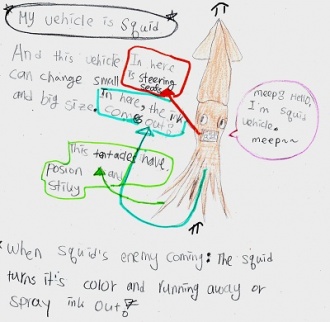 My vehicle is Squid
And this vehicle
can change small
and big size.
In here
is steering
seats
In here, the ink
comes out!
meep? Hello,
I'm squid
vehicle.
meep~~
This tentacles have
posion and
stiky
* When squid's enemy coming: The squid
turns it's color and running away or
spray ink out!